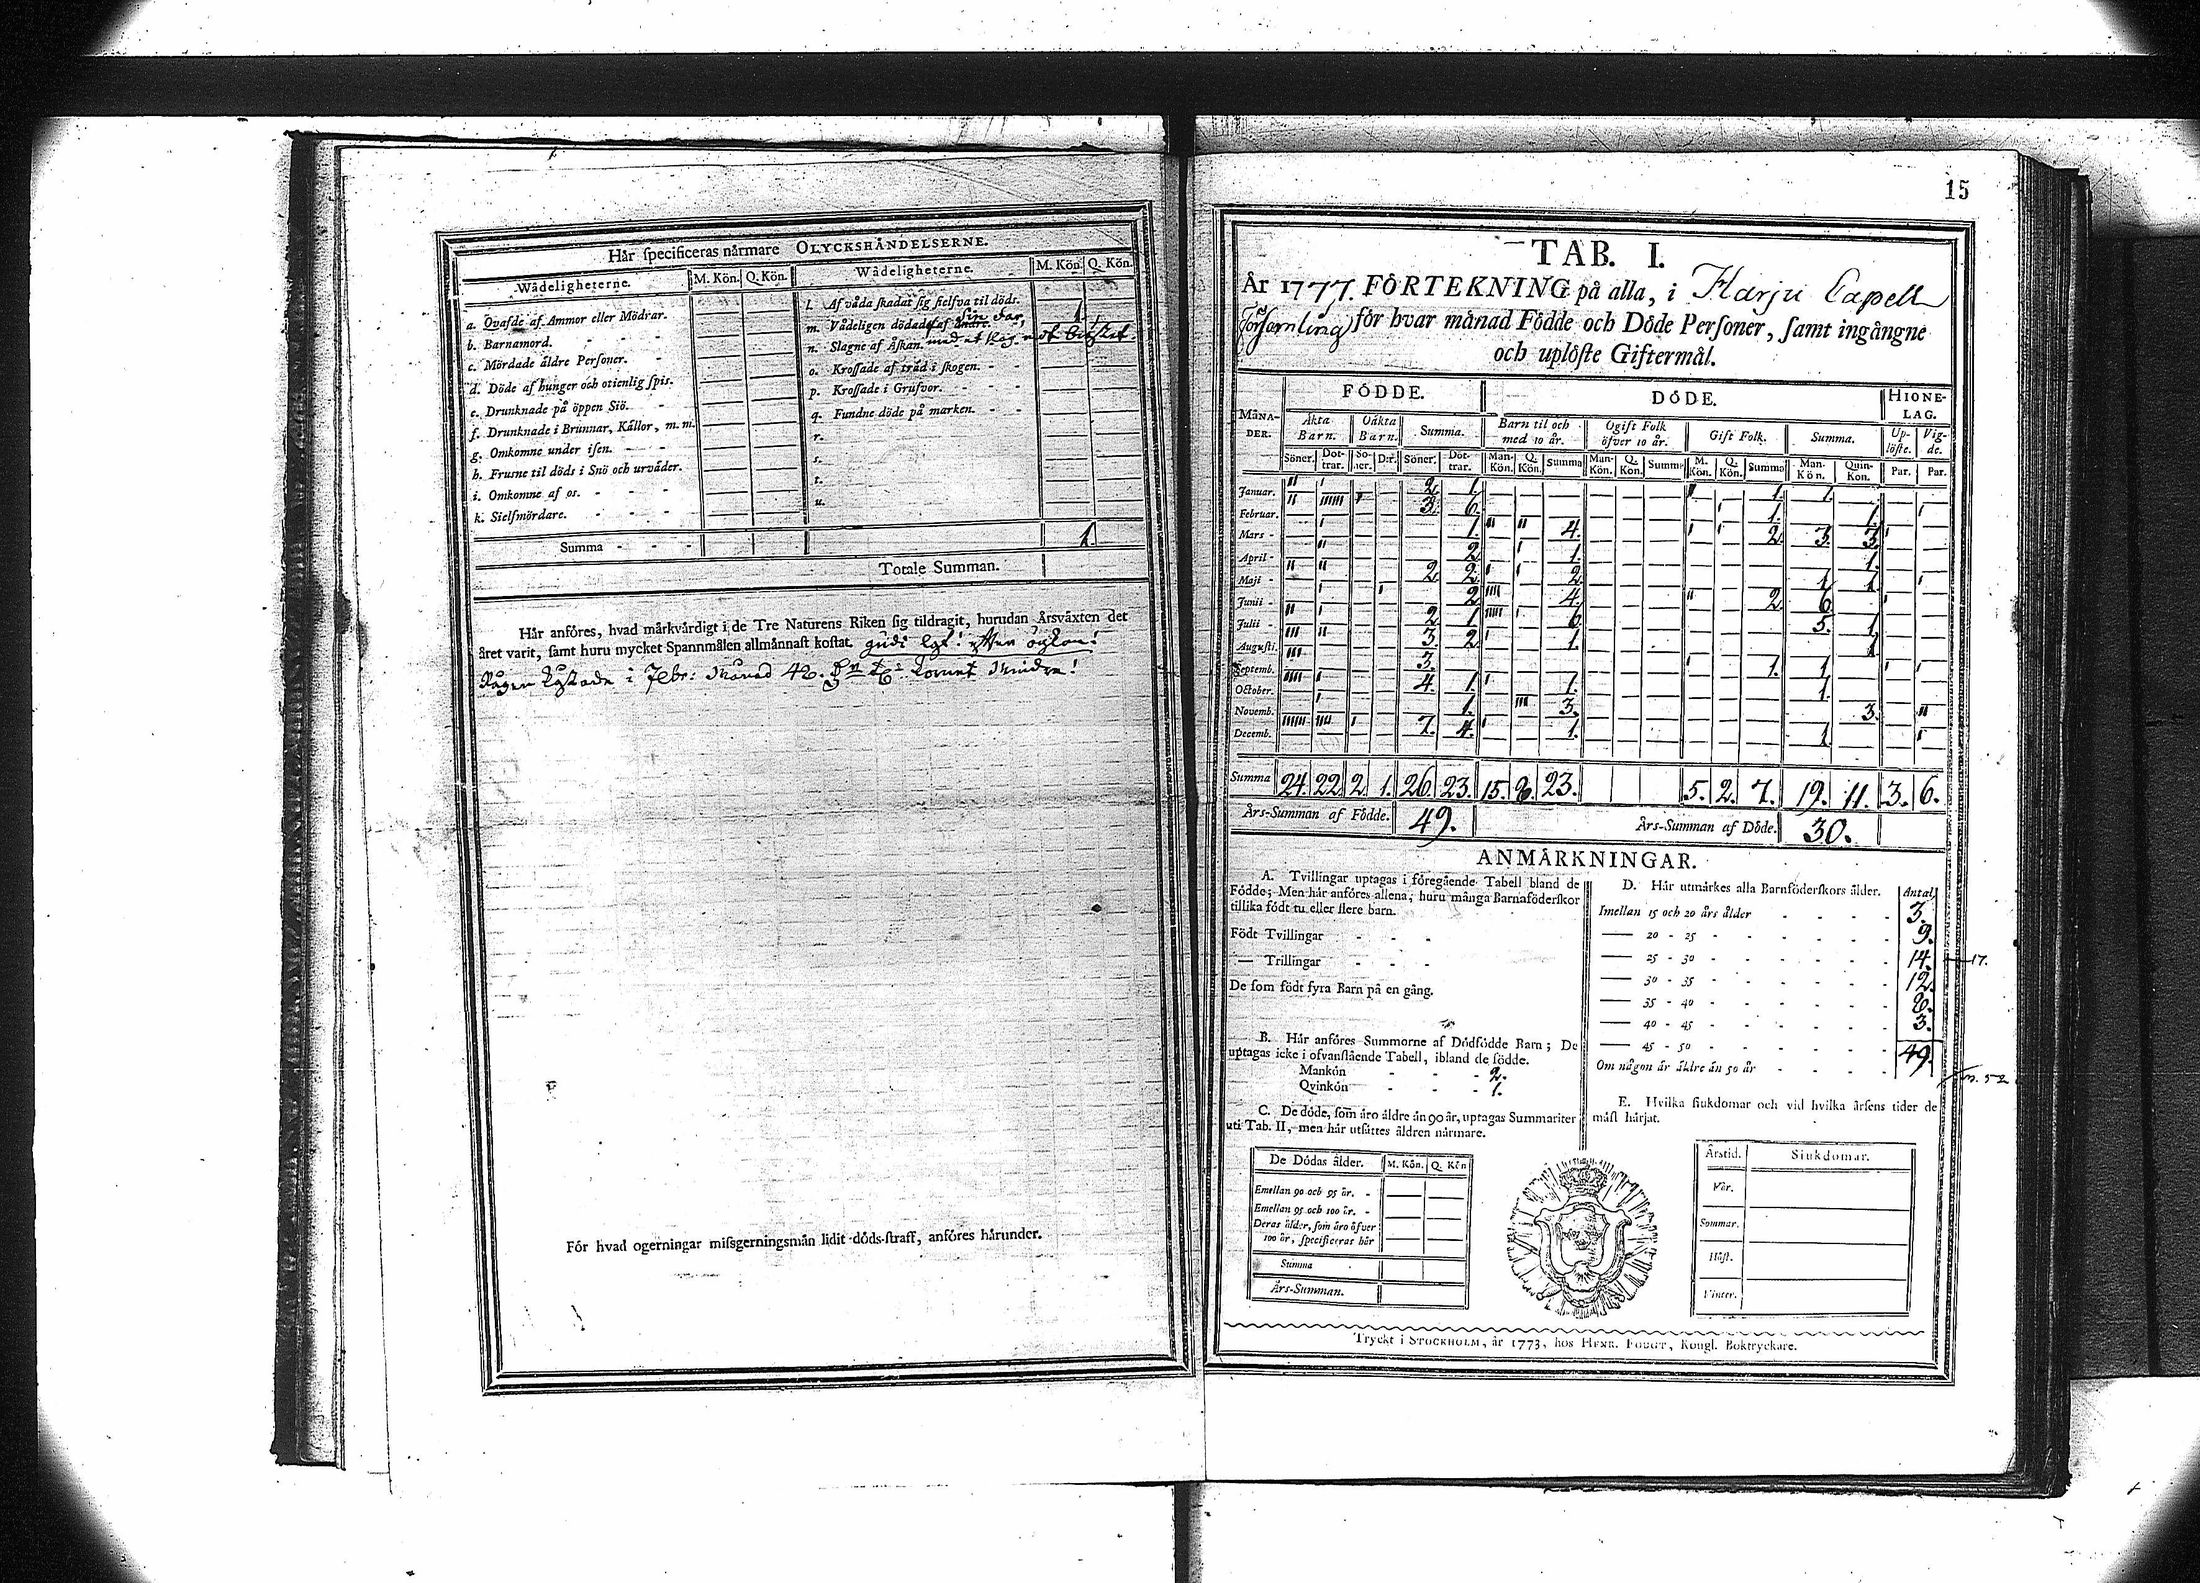 Här specificeras närmare OLYCKSHÄNDELSERNE.
Wådeligheterne. M. Kön. Q. Kön. Wådeligheterne. M. Kön. Q. Kön.
a. Qvafde af Ammor eller Mödrar.
b. Barnamord. - - -
c. Mördade äldre Personer. -
d. Döde af hunger och otienlig spis.
e. Drunknade på öppen Siö. -
f. Drunknade i Brunnar, Källor, m. m.
g. Omkomne under isen. - -
h. Frusne til döds i Snö och urväder.
i. Omkomne af os. - - -
k. Sielfmördare. - - -
l. Af våda skadat sig sielfva til döds. 1.
m. Vådeligen dödade af andre.
n. Slagne af Åskan.
o. Krossade af träd i skogen. - -
p. Krossade i Grufvor. - - -
q. Fundne döde på marken. - -
r.
s.
t.
u.
Summa - - - 1.
Totale Summan.
Här anföres, hvad märkvärdigt i de Tre Naturens Riken sig tildragit, hurudan Årsväxten det
året varit, samt huru mycket Spannmålen allmännast kostat.
Rågen kostade i
För hvad ogerningar missgerningsmän lidit döds-straff, anföres härunder.
15
TAB. I.
År 1777. FÖRTEKNING på alla, i Harju Capell
Församling för hvar månad Födde och Döde Personer, samt ingångne
och uplöste Giftermål.
MÅNADER. FÖDDE. DÖDE. HIONELAG.
Äkta Barn. Oäkta Barn. Summa. Barn til och med 10 år. Ogift Folk öfver 10 år. Gift Folk. Summa. Uplöste. Vigde.
Söner. Dottrar. Söner. D:r. Söner. Dottrar. Man-Kön. Q. Kön. Summa Man-Kön. Q. Kön. Summa M. Kön. Q. Kön. Summa Man-Kön. Quin-Kön. Par. Par.
Januar. 2. 1. 1. 1.
Februar. 3. 6. 1. 1.
Mars - 1. 4. 2. 3. 3.
April - 2. 1. 1.
Maji - 2. 2. 2. 1. 1.
Junii - 2. 4. 2. 6.
Julii - 2. 1. 6. 5. 1.
Augusti. 3. 2. 1. 1.
Septemb. 3. 1. 1.
October. 4. 1. 1. 1.
Novemb. 1. 3. 3.
Decemb. 7. 4. 1. 1.
Summa 24. 22. 2. 1. 26. 23. 15. 8. 23. 5. 2. 7. 19. 11. 3. 6.
Års-Summan af Födde. 49. Års-Summan af Döde. 30.
ANMÄRKNINGAR.
A. Tvillingar uptagas i föregående Tabell bland de
Födde; Men här anföres allena, huru många Barnaföderskor
tillika födt tu eller flere barn.
Födt Tvillingar - - -
— Trillingar - - -
De som födt fyra Barn på en gång.
B. Här anföres Summorne af Dödfödde Barn; De
uptagas icke i ofvanstående Tabell, ibland de födde.
Mankön - - - 2.
Qvinkön - - - 1.
C. De döde, som äro äldre än 90 år, uptagas Summariter
uti Tab. II, men här utsättes åldren närmare.
De Dödas ålder. M. Kön. Q. Kön
Emellan 90 och 95 år. -
Emellan 95 och 100 år. -
Deras ålder, som äro öfver
100 år, specificeras här
Summa
Års-Summan.
D. Här utmärkes alla Barnföderskors ålder. Antal
Imellan 15 och 20 års ålder - - - - 3.
— 20 - 25 - - - - - 9.
— 25 - 30 - - - - - 14. 17.
— 30 - 35 - - - - - 12.
— 35 - 40 - - - - - 8.
— 40 - 45 - - - - - 3.
— 45 - 50 - - - - - 49.
Om någon är äldre än 50 år - - - -
E. Hvilka siukdomar och vid hvilka årsens tider de
mäst härjat.
Årstid. Siukdomar.
Vår.
Sommar.
Höst.
Vinter.
Tryckt i STOCKHOLM, år 1773, hos HENR. FOUGT, Kongl. Boktryckare.